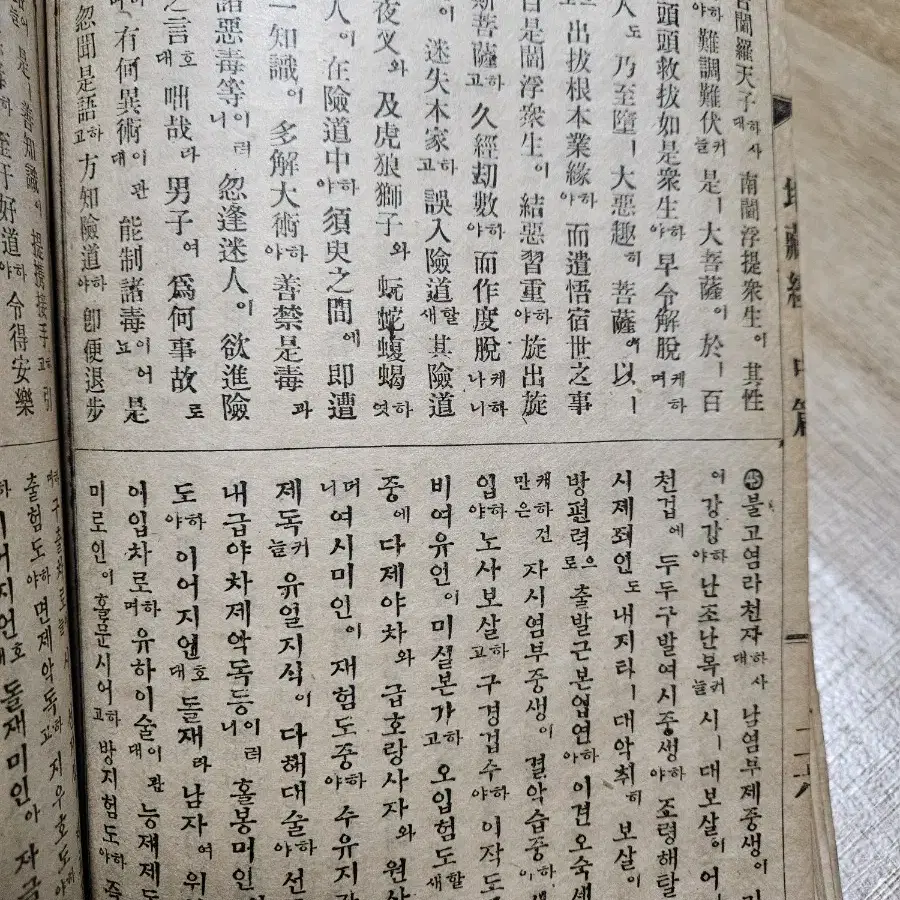 地藏經 中篇
告閻羅天子하사대 南閻浮提衆生이 其性
하야 難調難伏커늘 是ㅣ大菩薩이 於ㅣ百
頭頭救拔如是衆生하야 早令解脫케하며
人도 乃至墮ㅣ大惡趣히 菩薩이 以ㅣ
出拔根本業緣하야 而遣悟宿世之事
自是閻浮衆生이 結惡習重하야 旋出旋
斯菩薩하고 久經劫數하야 而作度脫케하나니
이 迷失本家하고 誤入險道할새 其險道
夜叉와 及虎狼獅子와 蚖蛇蝮蝎하엿
人이 在險道中하야 須臾之間에 即遭
一知識이 多解大術하야 善禁是毒과
諸惡毒等이러니 忽逢迷人이 欲進險
之言호대 咄哉라 男子여 爲何事故로
有何異術이관대 能制諸毒이어뇨 是
忽聞是語하고 方知險道하야 卽便退步
是善知識이 提携接手하고 引
至于好道하야 令得安樂
㊺불고염라천자하사대 남염부제중생이
이 강강하야 난조난복커늘 시ㅣ대보살이 어
천겁에 두두구발여시중생하야 조령해탈
시제죄인도 내지타ㅣ대악취히 보살이
방편력으로 출발근본업연하야 이견오숙세
케하건만은 자시염부중생이 결악습중하야
입하야 노사보살하고 구경겁수하야 이작도
비여유인이 미실본가하고 오입험도할새
중에 다제야차와 급호랑사자와 원사
여시미인이 재험도중하야 수유지간
제독커늘 유일지식이 다해대술하야 선
내급야차제악독등이러니 홀봉미인
도하야 이어지언호대 돌재라 남자여 위
어입차로하며 유하이술이관대 능제제도
미로인이 홀문시어하고 방지험도하야 즉
출험도하야 면제악독하고 지우호도하야
돌재미인아 자금